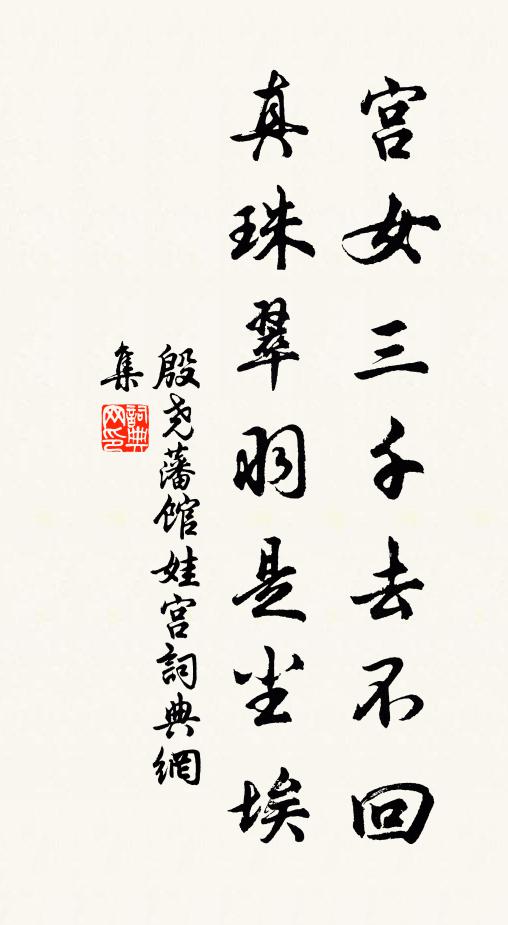 宫女三千去不回
真珠翠羽是尘埃
殷尧藩馆娃宫詞典網
集
詞典
网印